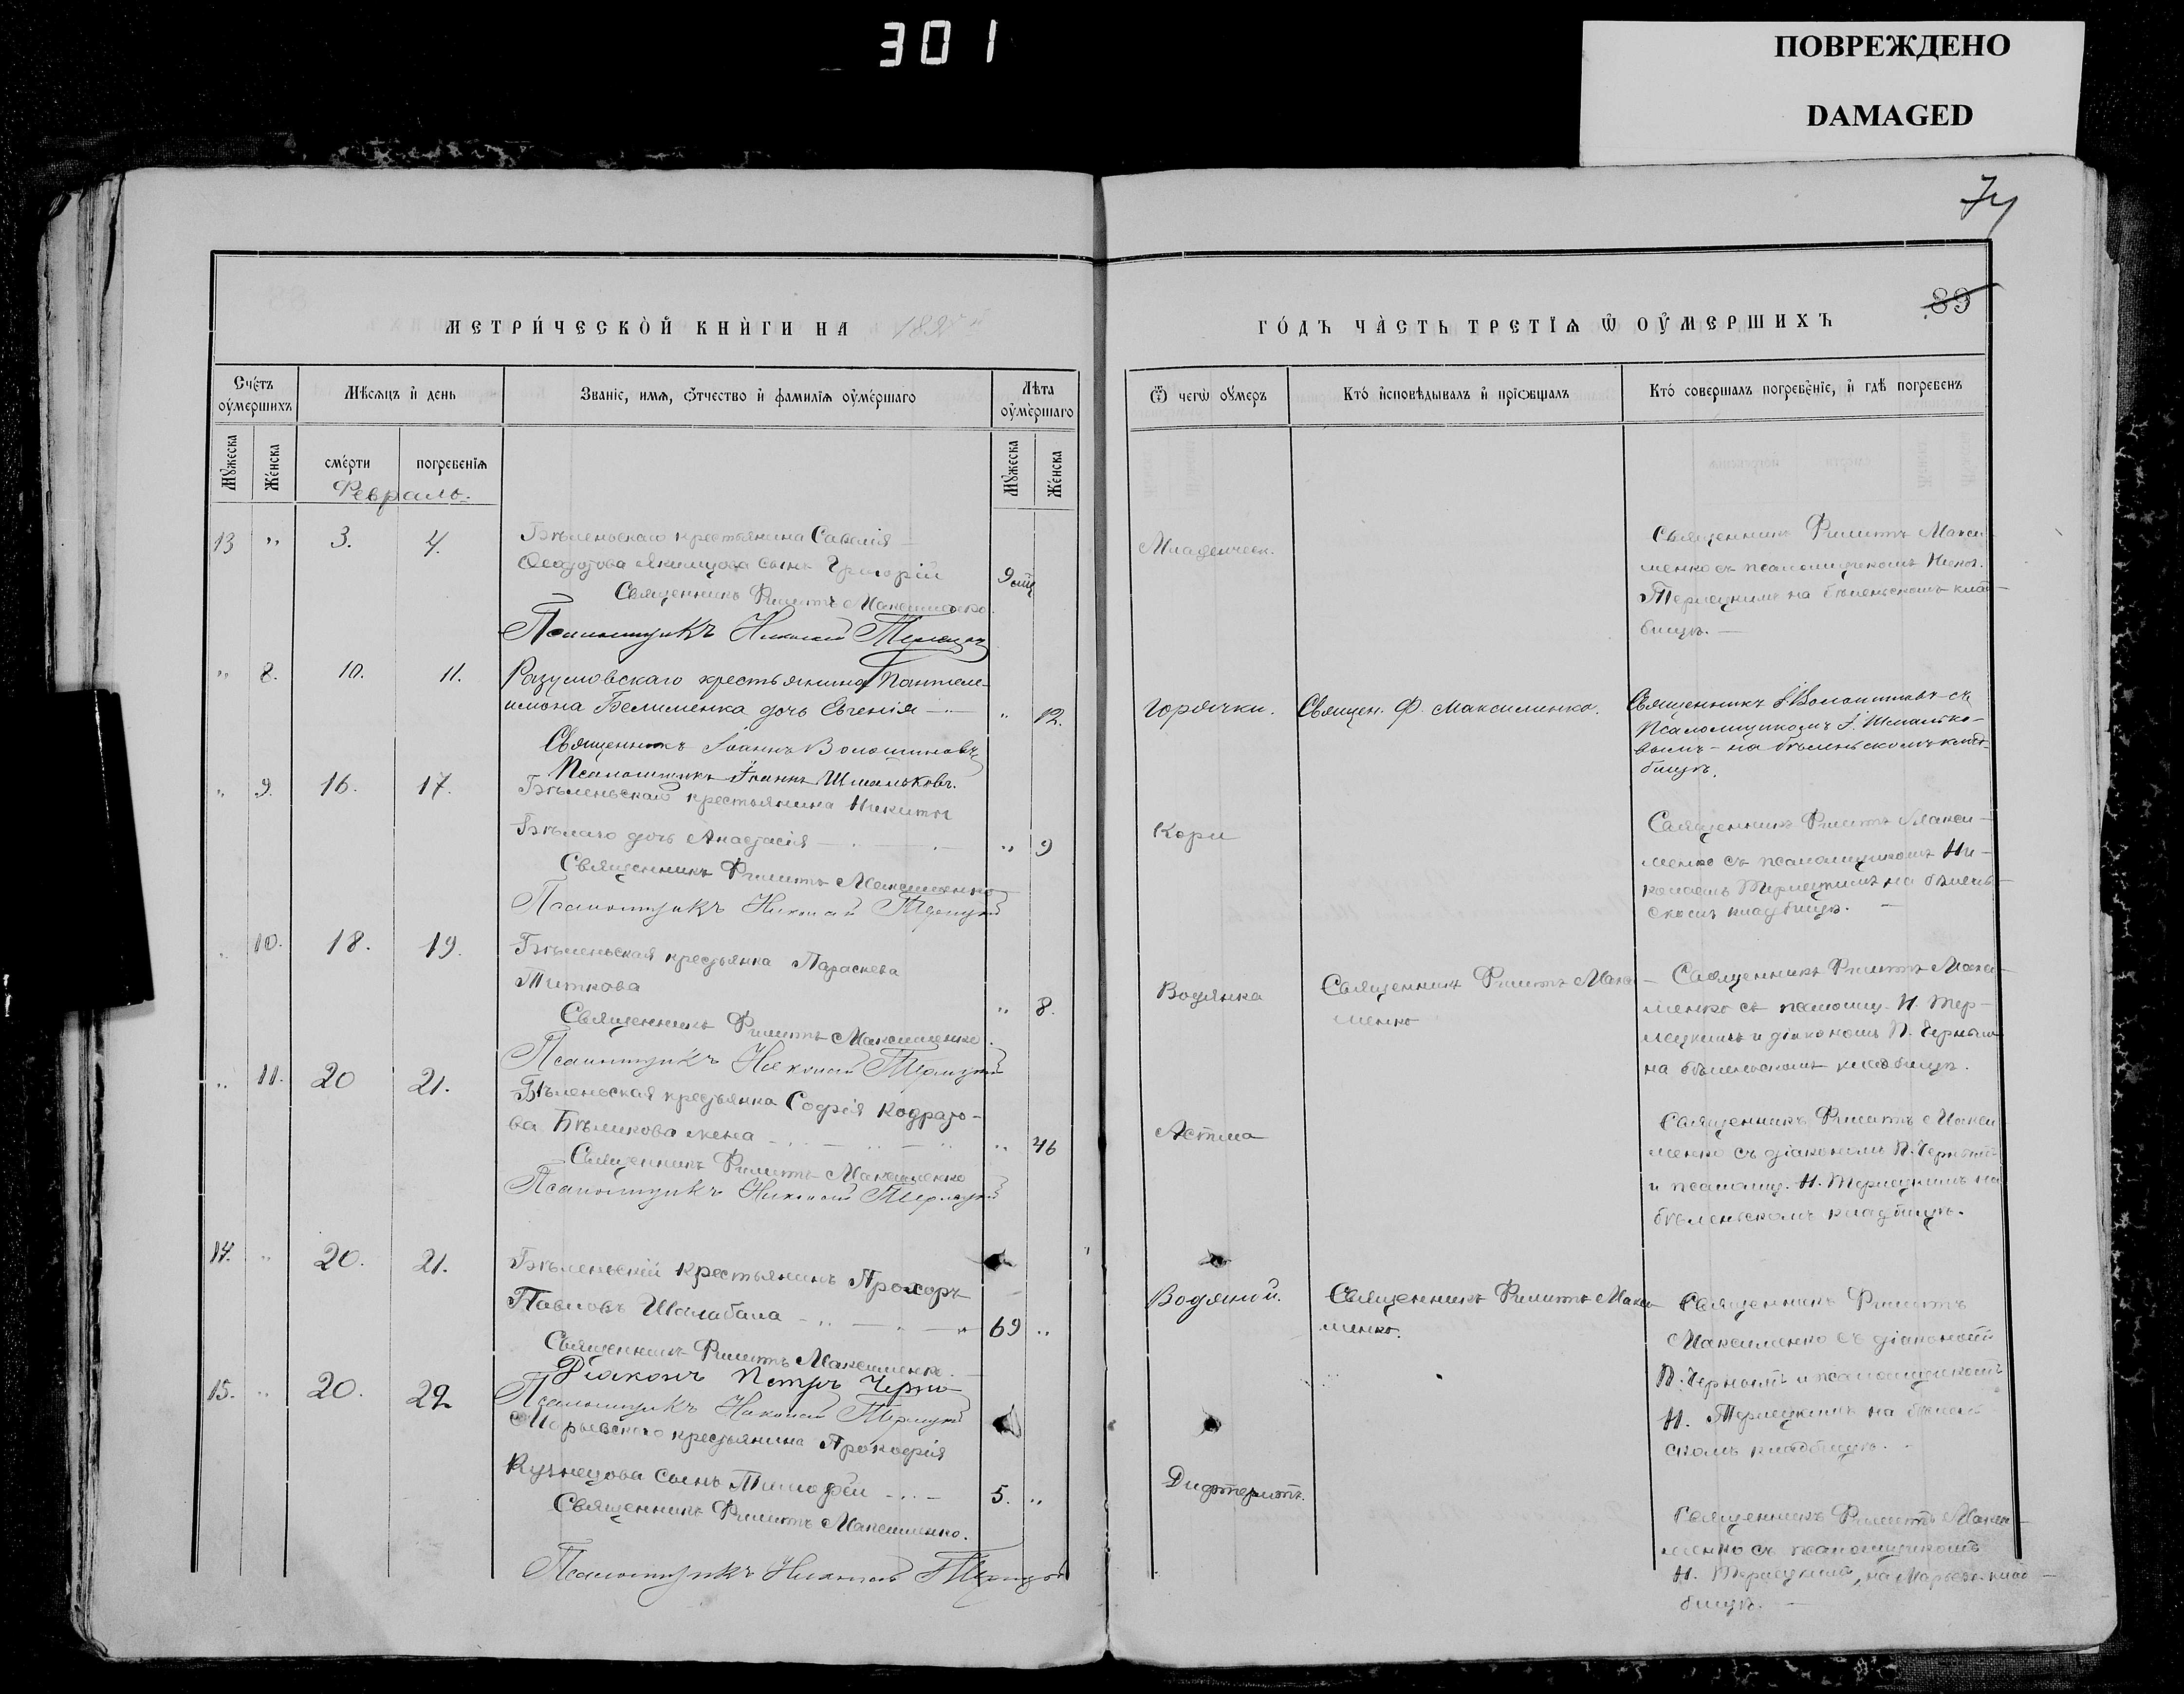 301
ПОВРЕЖДЕНО
DAMAGED
74
89
МЕТРИ́ЧЕСКОЙ КНИ́ГИ НА
ГО́ДЪ ЧА́СТЬ ТРЕТЇѦ Ѡ ОУ҆МЕРШИХЪ
Сче́тъ оу҆ме́ршихъ
Мѣсѧцъ и҆ день
Званіе, имѧ, ѿчество и҆ фамиліѧ оу҆ме́ршаго
Лѣта оу҆ме́ршаго
Ѿ чегѡ̀ оу҆меръ
Кто́ и҆сповѣдывалъ и҆ прїѡбщалъ
Кто́ совершалъ погребе́ніе, и҆ гдѣ̀ погребенъ
Мꙋжеска
Же́нска
сме́рти
погребеніѧ
Мꙋжеска
Же́нска
Февраль.
13 " 3. 4. Бѣленьскаго крестьянина Савелія
Федотова Якимцова сынъ Григорій
Священникъ Филиппъ Максименко
Псаломщикъ Николай Терлецкій
Младенческ.
Священникъ Филиппъ Макси-
менко съ псаломщикомъ Никол.
Терлецкимъ на бѣленьскомъ клад-
бищѣ. —
" 8. 10. 11. Разумовскаго крестьянина Пантеле-
имона Белименка дочь Евгенія — " 12.
Священникъ Іоаннъ Волошиновъ
Псаломщикъ Іоаннъ Шмальковъ.
Горячки.
Священ. Ф. Максименко.
Священникъ І. Волошиновъ съ
Псаломщикомъ І. Шмалько-
вымъ - на бѣленьскомъ клад-
бищѣ.
" 9. 16. 17. Бѣленьскаго крестьянина Никиты
Бѣлаго дочь Анастасія — " 9
Священникъ Филиппъ Максименко
Псаломщикъ Николай Терлецкій
Кори
Священникъ Филиппъ Макси-
менко съ псаломщикомъ Ни-
колаемъ Терлецкимъ на бѣлень-
скомъ кладбищѣ. —
" 10. 18. 19. Бѣленьская крестьянка Параскева
Титкова " 8.
Священникъ Филиппъ Максименко.
Псаломщикъ Николай Терлецкій
Водянка
Священникъ Филиппъ Макси-
менко
Священникъ Филиппъ Макси-
менко съ псаломщ. Н. Тер-
лецкимъ и діакономъ П. Чернымъ
на бѣленьскомъ кладбищѣ.
" 11. 20 21. Бѣленьская крестьянка Софія Кодрато-
ва Бѣликова жена — " 46
Священникъ Филиппъ Максименко
Псаломщикъ Николай Терлецкій
Астма
Священникъ Филиппъ Макси
менко съ діакономъ П. Чернымъ
и псаломщ. Н. Терлецкимъ на
бѣленьскомъ кладбищѣ.
14. " 20. 21. Бѣленьскій крестьянинъ Прохоръ
Павловъ Шалабала — 69 "
Священникъ Филиппъ Максименко.
Діаконъ Петръ Черно
Псаломщикъ Николай Терлецкій
Водяной.
Священникъ Филиппъ Макси-
менко.
Священникъ Филиппъ
Максименко съ діакономъ
П. Чернымъ и псаломщикомъ
Н. Терлецкимъ на бѣлень
скомъ кладбищѣ.
15. " 20. 22 Марьевскаго крестьянина Прокофія
Кузнецова сынъ Тимофей — 5. "
Священникъ Филиппъ Максименко.
Псаломщикъ Николай Терлецкій
Дифтеритъ.
Священникъ Филиппъ Макси-
менко съ псаломщикомъ
Н. Терлецкимъ, на Марьевск. клад-
бищѣ. —